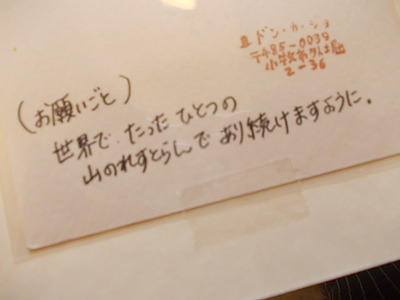 ドン・カ・ショ
〒485-0039
2-36
(お願いごと)
世界で たった ひとつの
山のれすとらんで あり続けますように。